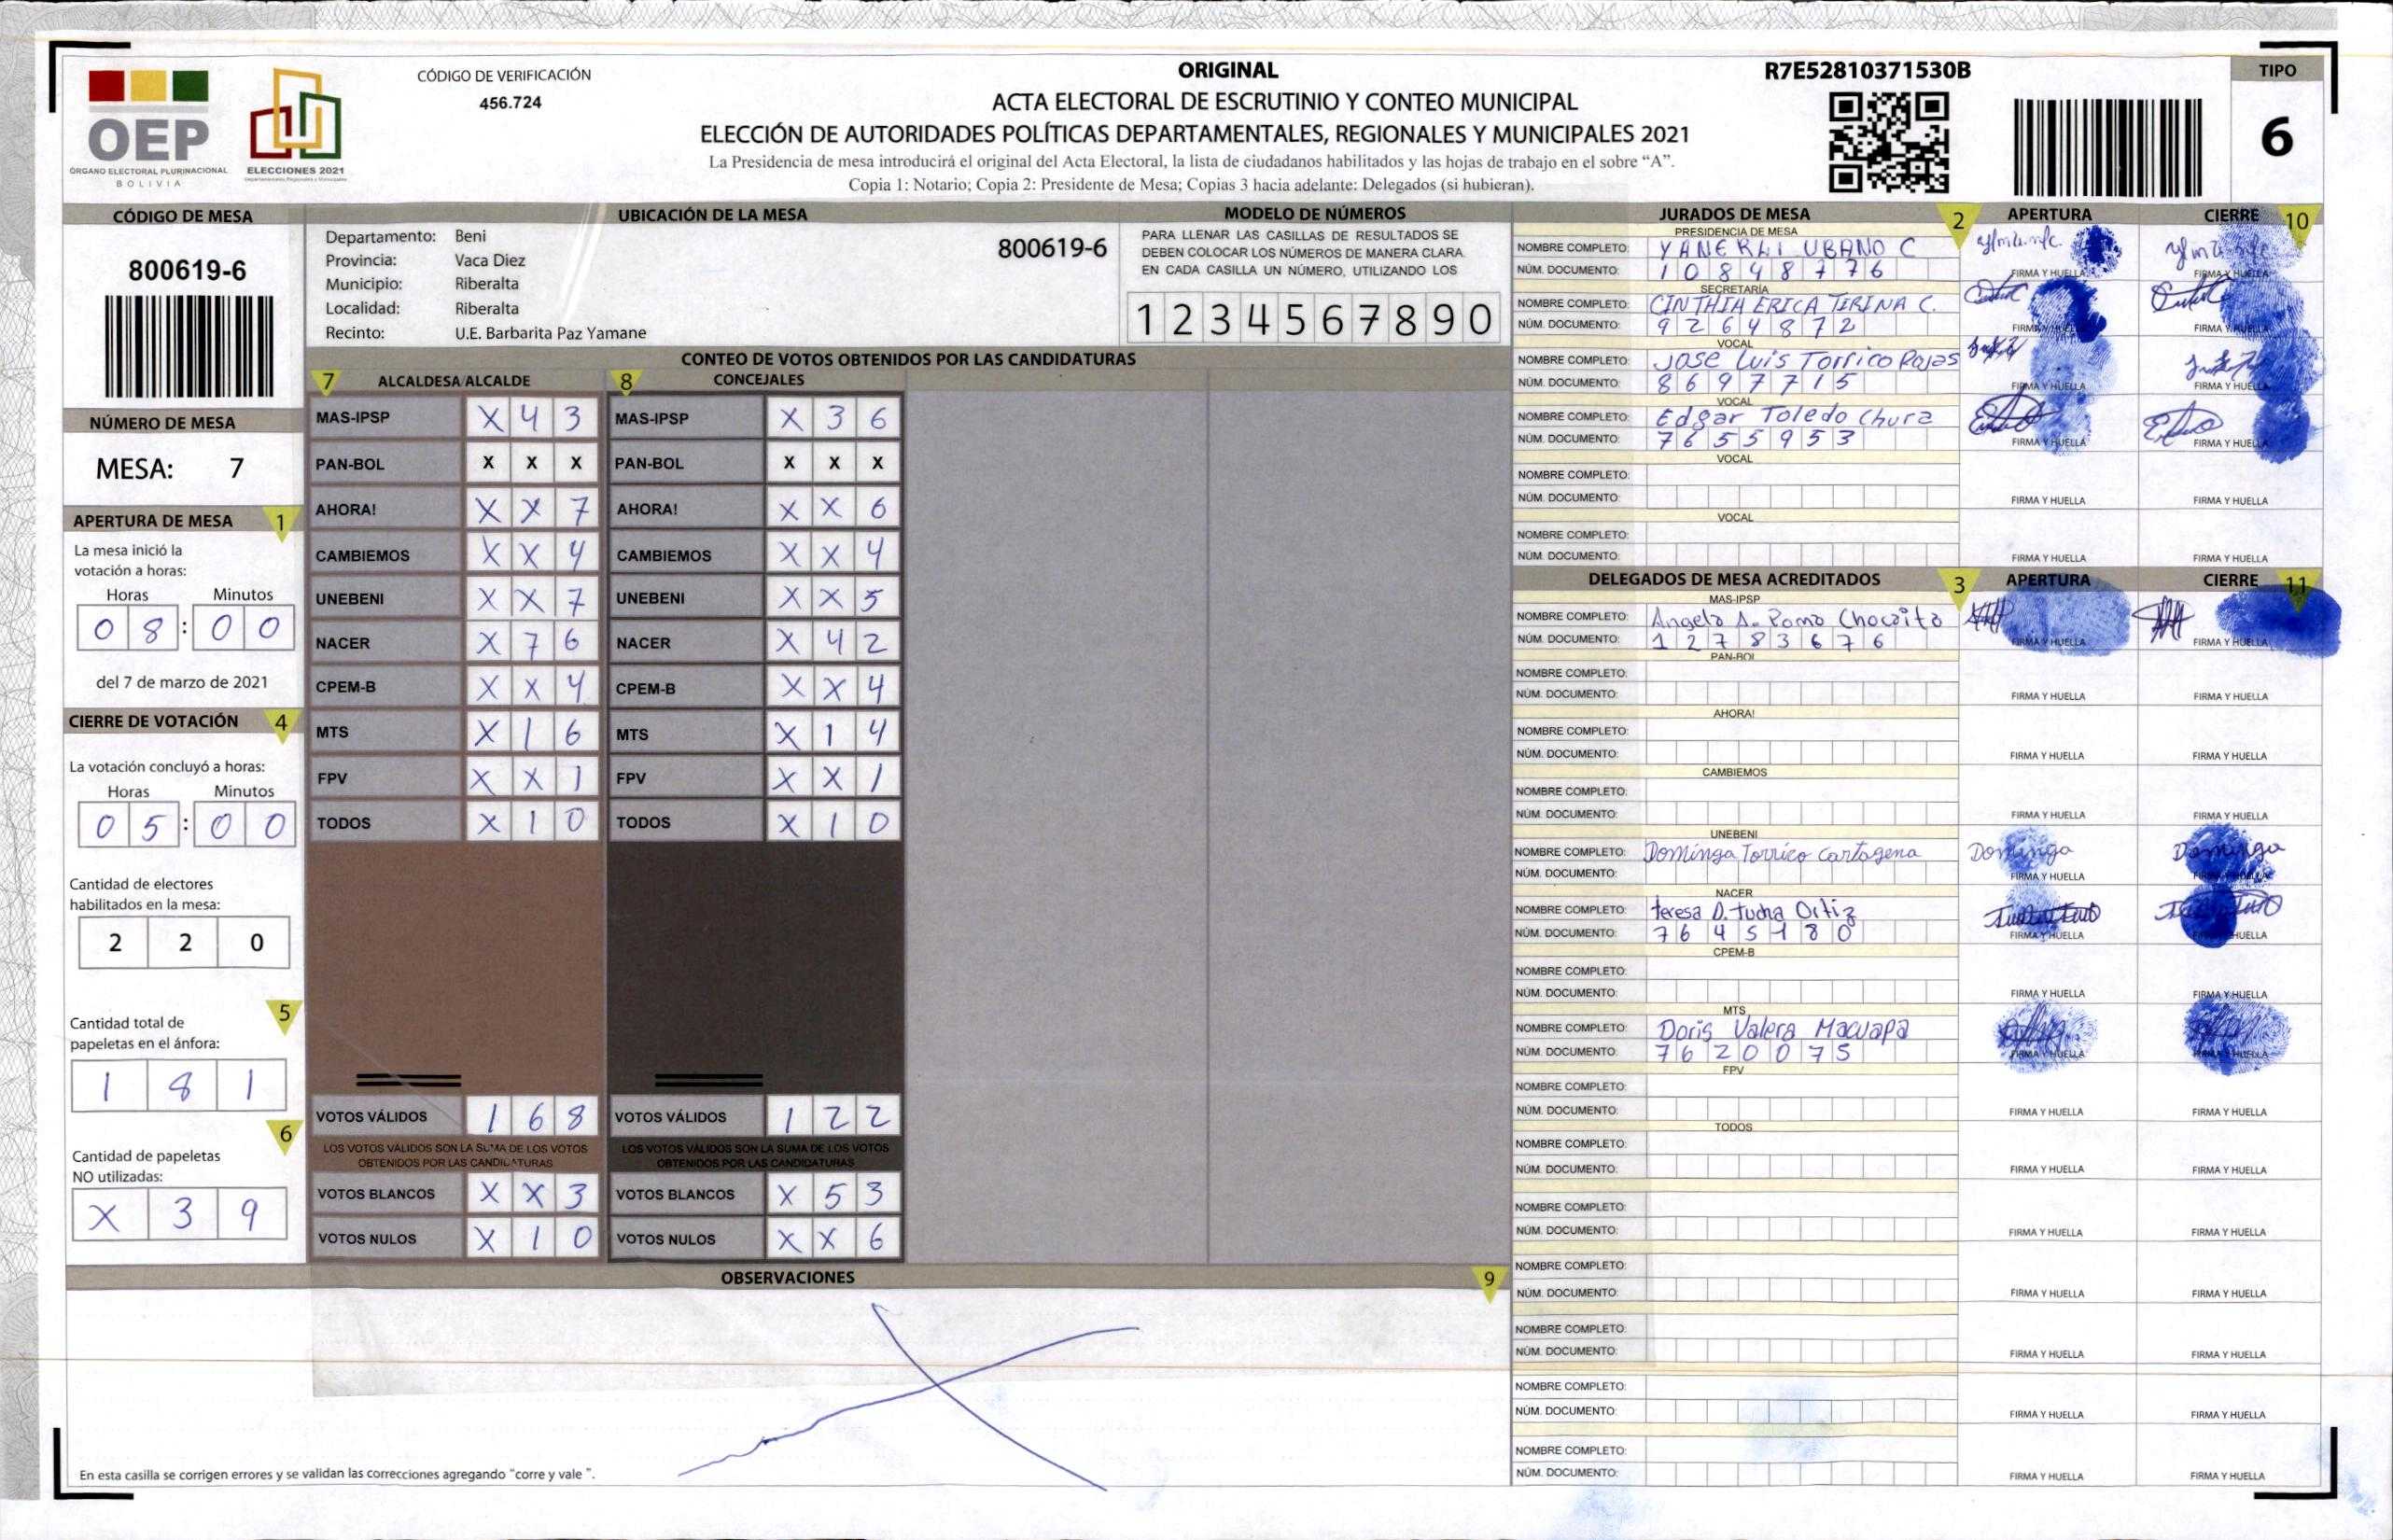 OEP
ÓRGANO ELECTORAL PLURINACIONAL
BOLIVIA
ELECCIONES 2021
CÓDIGO DE VERIFICACIÓN
456.724
ORIGINAL
ACTA ELECTORAL DE ESCRUTINIO Y CONTEO MUNICIPAL
ELECCIÓN DE AUTORIDADES POLÍTICAS DEPARTAMENTALES, REGIONALES Y MUNICIPALES 2021
La Presidencia de mesa introducirá el original del Acta Electoral, la lista de ciudadanos habilitados y las hojas de trabajo en el sobre “A”.
Copia 1: Notario; Copia 2: Presidente de Mesa; Copias 3 hacia adelante: Delegados (si hubieran).
R7E52810371530B
TIPO
6
CÓDIGO DE MESA
800619-6
NÚMERO DE MESA
MESA: 7
APERTURA DE MESA 1
La mesa inició la
votación a horas:
Horas Minutos
0 8 : 0 0
del 7 de marzo de 2021
CIERRE DE VOTACIÓN 4
La votación concluyó a horas:
Horas Minutos
0 5 : 0 0
Cantidad de electores
habilitados en la mesa:
2 2 0
5
Cantidad total de
papeletas en el ánfora:
1 8 1
6
Cantidad de papeletas
NO utilizadas:
X 3 9
UBICACIÓN DE LA MESA
Departamento: Beni
Provincia: Vaca Diez
Municipio: Riberalta
Localidad: Riberalta
Recinto: U.E. Barbarita Paz Yamane
800619-6
MODELO DE NÚMEROS
PARA LLENAR LAS CASILLAS DE RESULTADOS SE
DEBEN COLOCAR LOS NÚMEROS DE MANERA CLARA.
EN CADA CASILLA UN NÚMERO, UTILIZANDO LOS
1 2 3 4 5 6 7 8 9 0
CONTEO DE VOTOS OBTENIDOS POR LAS CANDIDATURAS
7 ALCALDESA/ALCALDE 8 CONCEJALES
MAS-IPSP X 4 3 MAS-IPSP X 3 6
PAN-BOL X X X PAN-BOL X X X
AHORA! X X 7 AHORA! X X 6
CAMBIEMOS X X 4 CAMBIEMOS X X 4
UNEBENI X X 7 UNEBENI X X 5
NACER X 7 6 NACER X 4 2
CPEM-B X X 4 CPEM-B X X 4
MTS X 1 6 MTS X 1 4
FPV X X 1 FPV X X 1
TODOS X 1 0 TODOS X 1 0
VOTOS VÁLIDOS 1 6 8 VOTOS VÁLIDOS 1 2 2
LOS VOTOS VÁLIDOS SON LA SUMA DE LOS VOTOS LOS VOTOS VÁLIDOS SON LA SUMA DE LOS VOTOS
OBTENIDOS POR LAS CANDIDATURAS OBTENIDOS POR LAS CANDIDATURAS
VOTOS BLANCOS X X 3 VOTOS BLANCOS X 5 3
VOTOS NULOS X 1 0 VOTOS NULOS X X 6
OBSERVACIONES 9
En esta casilla se corrigen errores y se validan las correcciones agregando "corre y vale ".
JURADOS DE MESA 2 APERTURA CIERRE 10
PRESIDENCIA DE MESA
NOMBRE COMPLETO: YANERLI UBANO C
NÚM. DOCUMENTO: 1 0 8 4 8 7 7 6 FIRMA Y HUELLA FIRMA Y HUELLA
SECRETARÍA
NOMBRE COMPLETO: CINTHIA ERICA TIRINA C.
NÚM. DOCUMENTO: 9 2 6 4 8 7 2 FIRMA Y HUELLA FIRMA Y HUELLA
VOCAL
NOMBRE COMPLETO: Jose Luis Torrico Rojas
NÚM. DOCUMENTO: 8 6 9 7 7 1 5 FIRMA Y HUELLA FIRMA Y HUELLA
VOCAL
NOMBRE COMPLETO: Edgar Toledo Chura
NÚM. DOCUMENTO: 7 6 5 5 9 5 3 FIRMA Y HUELLA FIRMA Y HUELLA
VOCAL
NOMBRE COMPLETO:
NÚM. DOCUMENTO: FIRMA Y HUELLA FIRMA Y HUELLA
VOCAL
NOMBRE COMPLETO:
NÚM. DOCUMENTO: FIRMA Y HUELLA FIRMA Y HUELLA
DELEGADOS DE MESA ACREDITADOS 3 APERTURA CIERRE 11
MAS-IPSP
NOMBRE COMPLETO: Angela A. Poma Chocaita
NÚM. DOCUMENTO: 1 2 7 8 3 6 7 6 FIRMA Y HUELLA FIRMA Y HUELLA
PAN-BOL
NOMBRE COMPLETO:
NÚM. DOCUMENTO: FIRMA Y HUELLA FIRMA Y HUELLA
AHORA!
NOMBRE COMPLETO:
NÚM. DOCUMENTO: FIRMA Y HUELLA FIRMA Y HUELLA
CAMBIEMOS
NOMBRE COMPLETO:
NÚM. DOCUMENTO: FIRMA Y HUELLA FIRMA Y HUELLA
UNEBENI
NOMBRE COMPLETO: Dominga Torrico Cartagena Dominga Dominga
NÚM. DOCUMENTO: FIRMA Y HUELLA FIRMA Y HUELLA
NACER
NOMBRE COMPLETO: teresa D. tucha Ortiz
NÚM. DOCUMENTO: 7 6 4 5 1 8 0 FIRMA Y HUELLA FIRMA Y HUELLA
CPEM-B
NOMBRE COMPLETO:
NÚM. DOCUMENTO: FIRMA Y HUELLA FIRMA Y HUELLA
MTS
NOMBRE COMPLETO: Doris Valera Macuapa
NÚM. DOCUMENTO: 7 6 2 0 0 7 5 FIRMA Y HUELLA FIRMA Y HUELLA
FPV
NOMBRE COMPLETO:
NÚM. DOCUMENTO: FIRMA Y HUELLA FIRMA Y HUELLA
TODOS
NOMBRE COMPLETO:
NÚM. DOCUMENTO: FIRMA Y HUELLA FIRMA Y HUELLA
NOMBRE COMPLETO:
NÚM. DOCUMENTO: FIRMA Y HUELLA FIRMA Y HUELLA
NOMBRE COMPLETO:
NÚM. DOCUMENTO: FIRMA Y HUELLA FIRMA Y HUELLA
NOMBRE COMPLETO:
NÚM. DOCUMENTO: FIRMA Y HUELLA FIRMA Y HUELLA
NOMBRE COMPLETO:
NÚM. DOCUMENTO: FIRMA Y HUELLA FIRMA Y HUELLA
NOMBRE COMPLETO:
NÚM. DOCUMENTO: FIRMA Y HUELLA FIRMA Y HUELLA